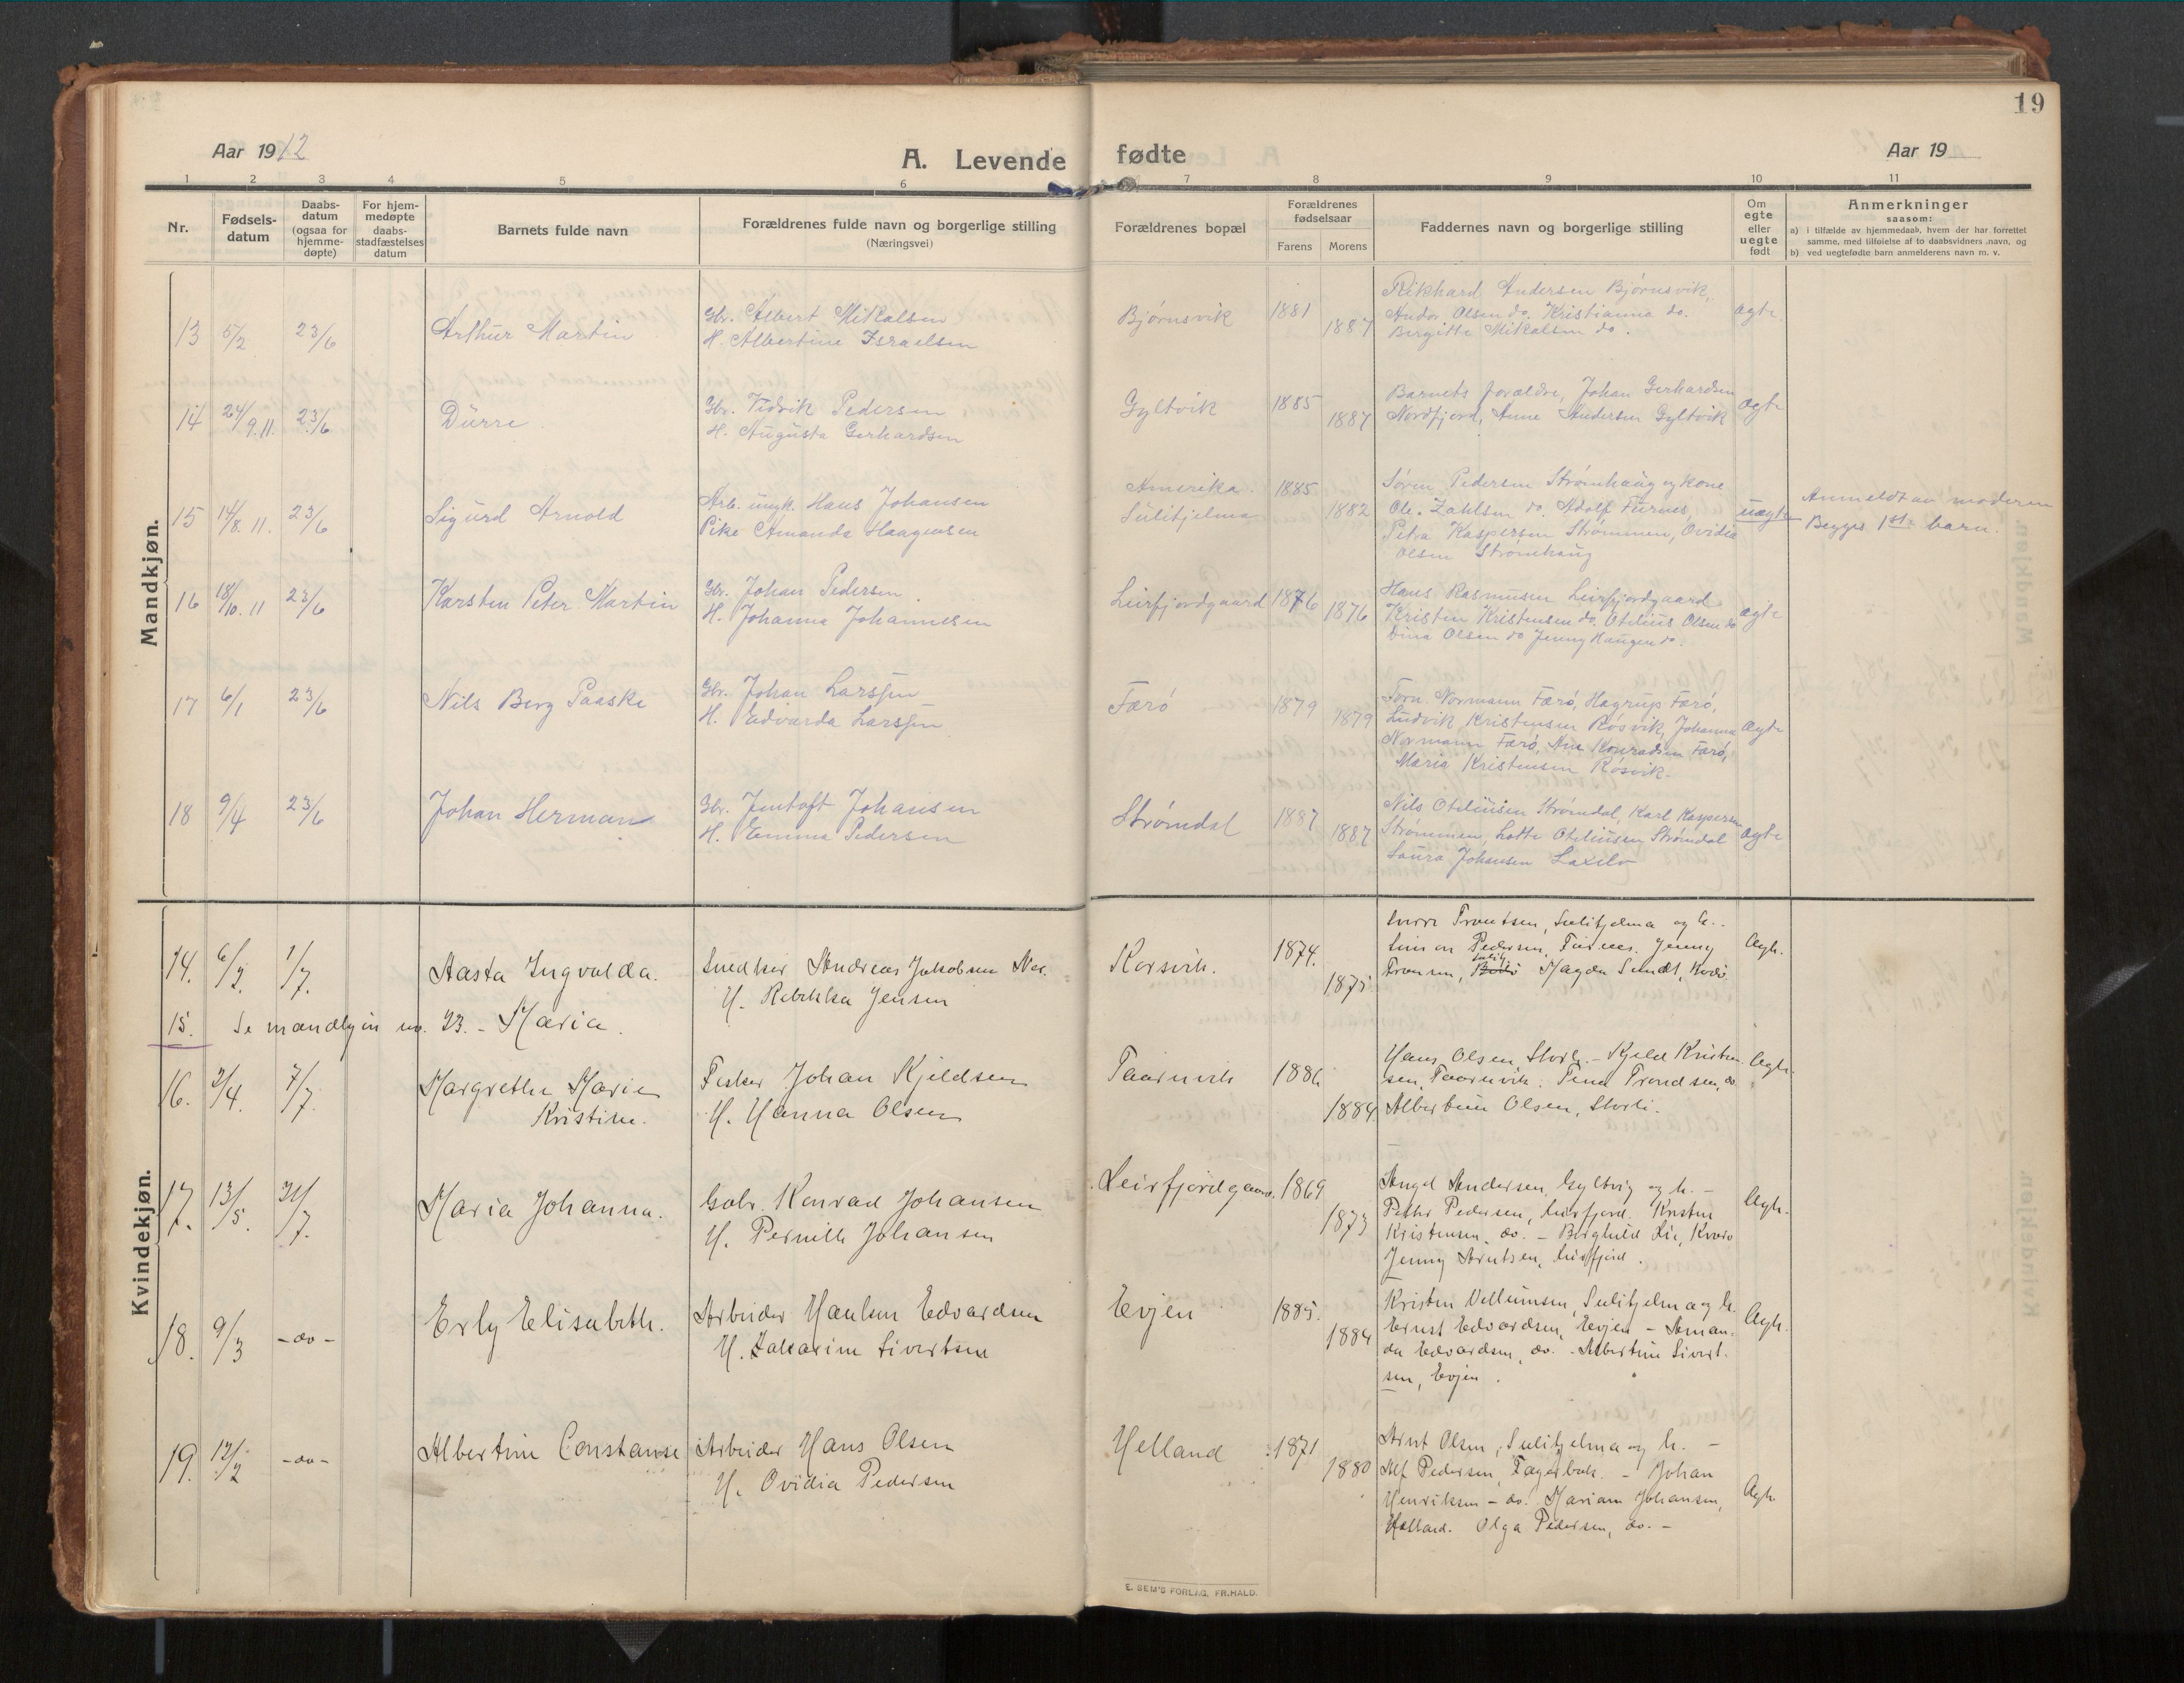 19
Aar 1912
A. Levende fødte
Aar 19
1 2 3 4 5 6 7 8 9 10 11
Nr.
Fødsels-
datum
Daabs-
datum
(ogsaa for
hjemme-
døpte)
For hjem-
medøpte
daabs-
stadfæstelses
datum
Barnets fulde navn
Forældrenes fulde navn og borgerlige stilling
(Næringsvei)
Forældrenes bopæl
Forældrenes
fødselsaar
Farens Morens
Faddernes navn og borgerlige stilling
Om
egte
eller
uegte
født
Anmerkninger
saasom:
a) i tilfælde av hjemmedaab, hvem der har forrettet
samme, med tilføielse af to daabsvidners navn, og
b) ved uegtefødte barn anmelderens navn m. v.
Mandkjøn.
13 5/2 23/6 Arthur Martin
Gbr. Albert Mikalsen
H. Albertine Israelsen
Bjørnsvik 1881 1887
Rikhard Andersen Bjørnsvik,
Andor Olsen do. Kristianna do.
Bergitte Mikalsen do.
ægte
14 24/9.11. 23/6 Dürre
Gbr. Fidrik Pedersen
H. Augusta Gerhardsen
Gyltvik 1885 1887
Barnets forældre, Johan Gerhardsen
Nordfjord, Anne Andersen Gyltvik
ægte
15 14/8.11. 23/6 Sigurd Arnold
Arb. ungk. Hans Johansen
Pike Amanda Haagensen
Amerika
Sulitjelma
1885 1882
Søren Pedersen Strømhaug og kone
Ole Zahlsen do. Adolf Furnes,
Petra Kaspersen Strømmen, Ovidia
Olsen Strømhaug
uægte
Anmeldt av moderen
Begges 1ste barn.
16 18/10.11 23/6 Karsten Peter Martin
Gbr. Johan Pedersen
H. Johanna Johannesen
Leirfjordgaard 1876 1876
Hans Rasmussen Leirfjordgaard
Kristen Kristensen do. Otelius Olsen do
Dina Olsen do Jenny Haugen do.
ægte
17 6/1 23/6 Nils Berg Paaske
Gbr. Johan Larssen
H. Edvarda Larssen
Færø 1879 1879
Normann Færø, Hagrup Færø,
Ludvik Kristensen Røsvik, Johanna
Normann Færø, Ane Konradsen Færø,
Maria Kristensen Røsvik.
ægte
18 9/4 23/6 Johan Herman
Gbr. Jentoft Johansen
H. Emma Pedersen
Strømdal 1887 1887
Nils Oteliusen Strømdal, Karl Kaspersen
Strømmen, Lotte Oteliusen Strømdal
Laura Johansen
ægte
Kvindekjøn.
14. 6/2. 1/7. Aasta Ingvalda.
Snedker Andreas Jakobsen
H. Rebekka Jensen
Korsvik. 1874. 1875
Trontsen, Sulitjelma og h.
Simon Pedersen, Furnes. Jenny
Magda
Ægte.
15. Se mandkjøn no. 23. - Maria.
16. 2/4. 7/7. Margrethe Marie
Kristine.
Fisker Johan Kjeldsen
H. Hanna Olsen
Taarnvik 1886 1884.
Hans Olsen, Storli. - Kjeld Kristen-
sen, Taarnvik. Tina Trondsen, do.
Albertine Olsen, Storli.
Ægte.
17. 13/5. 21/7. Maria Johanna.
Gbr. Konrad Johansen
H. Pernille Johansen
Leirfjordgaard. 1869 1873
Angel Andersen, Gyltvig og h. -
Peder Pedersen, Leirfjord. Kristen
Kristensen, do. - Borghild Lie,
Jenny Arntsen, Leirfjord.
Ægte.
18. 9/3 - do - Erly Elisabeth.
Arbeider Edvardsen
H. Zakarine Sivertsen
Evjen 1885. 1884
Kristen Vellumsen, Sulitjelma og h.
Ernst Edvardsen, Evjen - Aman-
da Edvardsen, do. - Albertine Sivert-
sen, Evjen.
Ægte.
19. 12/2 - do - Albertine Constanse
Arbeider Hans Olsen
H. Ovidia Pedersen
Helland 1871 1880
Arnt Olsen, Sulitjelma og h. -
Alf Pedersen, Fagerbak. - Johan
Henriksen - do. Mariam Johansen,
Helland. Olga Pedersen, do. -
Ægte
E. SEM'S FORLAG, FR.HALD.